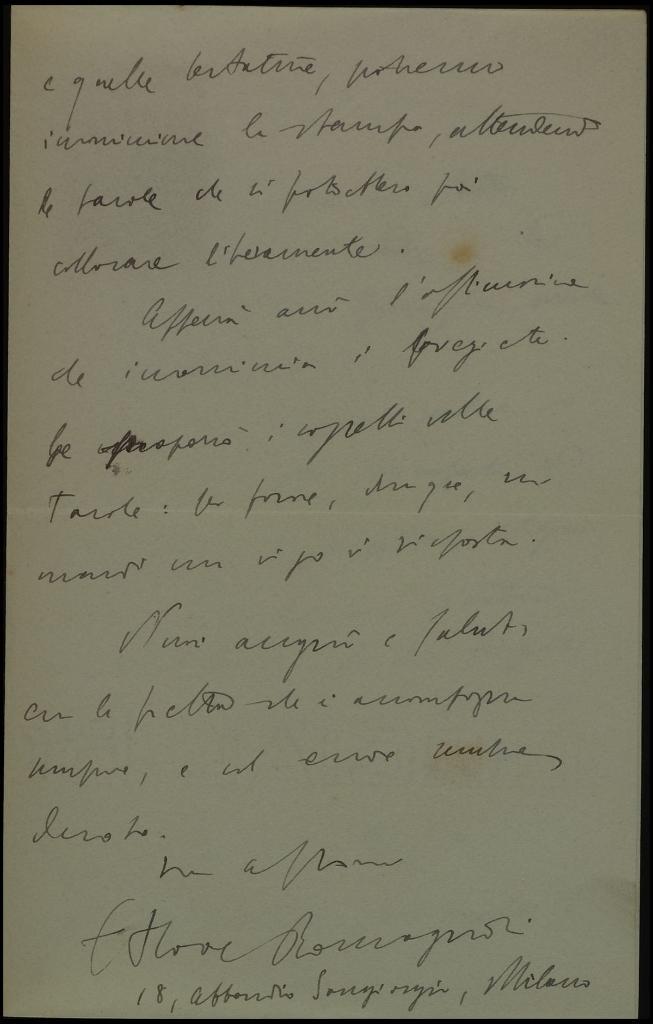 e quelle testatine, potremmo
incominciare la stampa, attendendo
le tavole che si potrebbero poi
collocare liberamente.
Appena avrò l'assicurazione
che incomincia i
Le i cappelli alle
Tavole: per favore, dunque, mi
mandi un rigo di risposta.
Nuovi auguri e saluti
con la fretta che ci accompagna
sempre, e col cuore
devoto.
Suo aff.mo
Ettore Romagnoli
18, Abbondio Sangiorgio, Milano